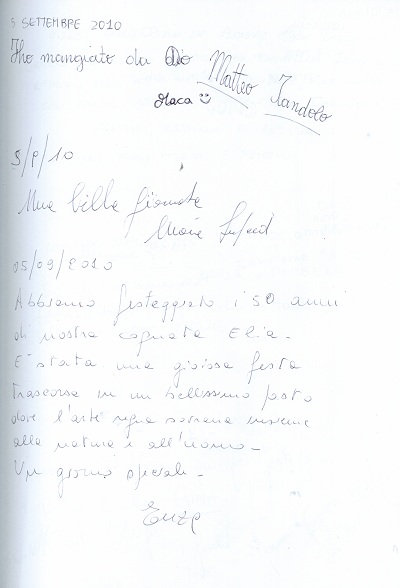 5 SETTEMBRE 2010
Ho mangiato da Dio Matteo
Iandolo
Maca
5/9/10
Una bella giornata
Maria
05/09/2010
Abbiamo festeggiato i 50 anni
di nostra cognata Elia.
E' stata una gioiosa festa
trascorsa in un bellissimo posto
dove l'arte regna sovrana insieme
alla natura e all'uomo.
Un giorno speciale.
Enzo